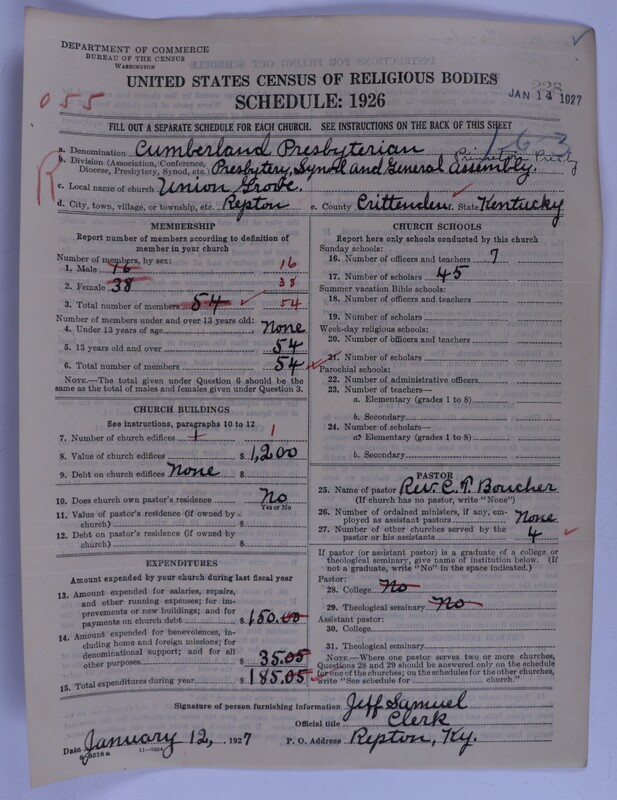 DEPARTMENT OF COMMERCE
BUREAU OF THE CENSUS
WASHINGTON
UNITED STATES CENSUS OF RELIGIOUS BODIES
SCHEDULE: 1926
228
JAN 14 1927
055
FILL OUT A SEPARATE SCHEDULE FOR EACH CHURCH. SEE INSTRUCTIONS ON THE BACK OF THIS SHEET
R
a. Denomination Cumberland Presbyterian
b. Division (Association, Conference, Diocese, Presbytery, Synod, etc.) Presbytery, Synod and General Assembly.
c. Local name of church Union Grove.
d. City, town, village, or township, etc. Repton e. County Crittenden f. State Kentucky
MEMBERSHIP
Report number of members according to definition of member in your church
Number of members, by sex:
1. Male 16 16
2. Female 38 38
3. Total number of members 54 54
Number of members under and over 13 years old:
4. Under 13 years of age None
5. 13 years old and over 54
6. Total number of members 54
NOTE.—The total given under Question 6 should be the same as the total of males and females given under Question 3.
CHURCH BUILDINGS
See instructions, paragraphs 10 to 12
7. Number of church edifices 1 1
8. Value of church edifices $ 1,200
9. Debt on church edifices None $
10. Does church own pastor's residence No
Yes or No
11. Value of pastor's residence (if owned by church) $
12. Debt on pastor's residence (if owned by church) $
EXPENDITURES
Amount expended by your church during last fiscal year
13. Amount expended for salaries, repairs, and other running expenses; for improvements or new buildings; and for payments on church debt $ 150.00
14. Amount expended for benevolences, including home and foreign missions; for denominational support; and for all other purposes $ 35.05
15. Total expenditures during year $ 185.05
CHURCH SCHOOLS
Report here only schools conducted by this church
Sunday schools:
16. Number of officers and teachers 7
17. Number of scholars 45
Summer vacation Bible schools:
18. Number of officers and teachers
19. Number of scholars
Week-day religious schools:
20. Number of officers and teachers
21. Number of scholars
Parochial schools:
22. Number of administrative officers
23. Number of teachers—
a. Elementary (grades 1 to 8)
b. Secondary
24. Number of scholars—
a. Elementary (grades 1 to 8)
b. Secondary
PASTOR
25. Name of pastor Rev. C. T. Boucher
(If church has no pastor, write "None")
26. Number of ordained ministers, if any, employed as assistant pastors None
27. Number of other churches served by the pastor or his assistants 4
If pastor (or assistant pastor) is a graduate of a college or theological seminary, give name of institution below. (If not a graduate, write "No" in the space indicated.)
Pastor:
28. College No
29. Theological seminary No
Assistant pastor:
30. College
31. Theological seminary
NOTE.—Where one pastor serves two or more churches, Questions 28 and 29 should be answered only on the schedule for one of the churches; on the schedules for the other churches, write "See schedule for church."
Signature of person furnishing information Jeff Samuel
Official title Clerk
Date January 12, 1927 P. O. Address Repton, Ky.